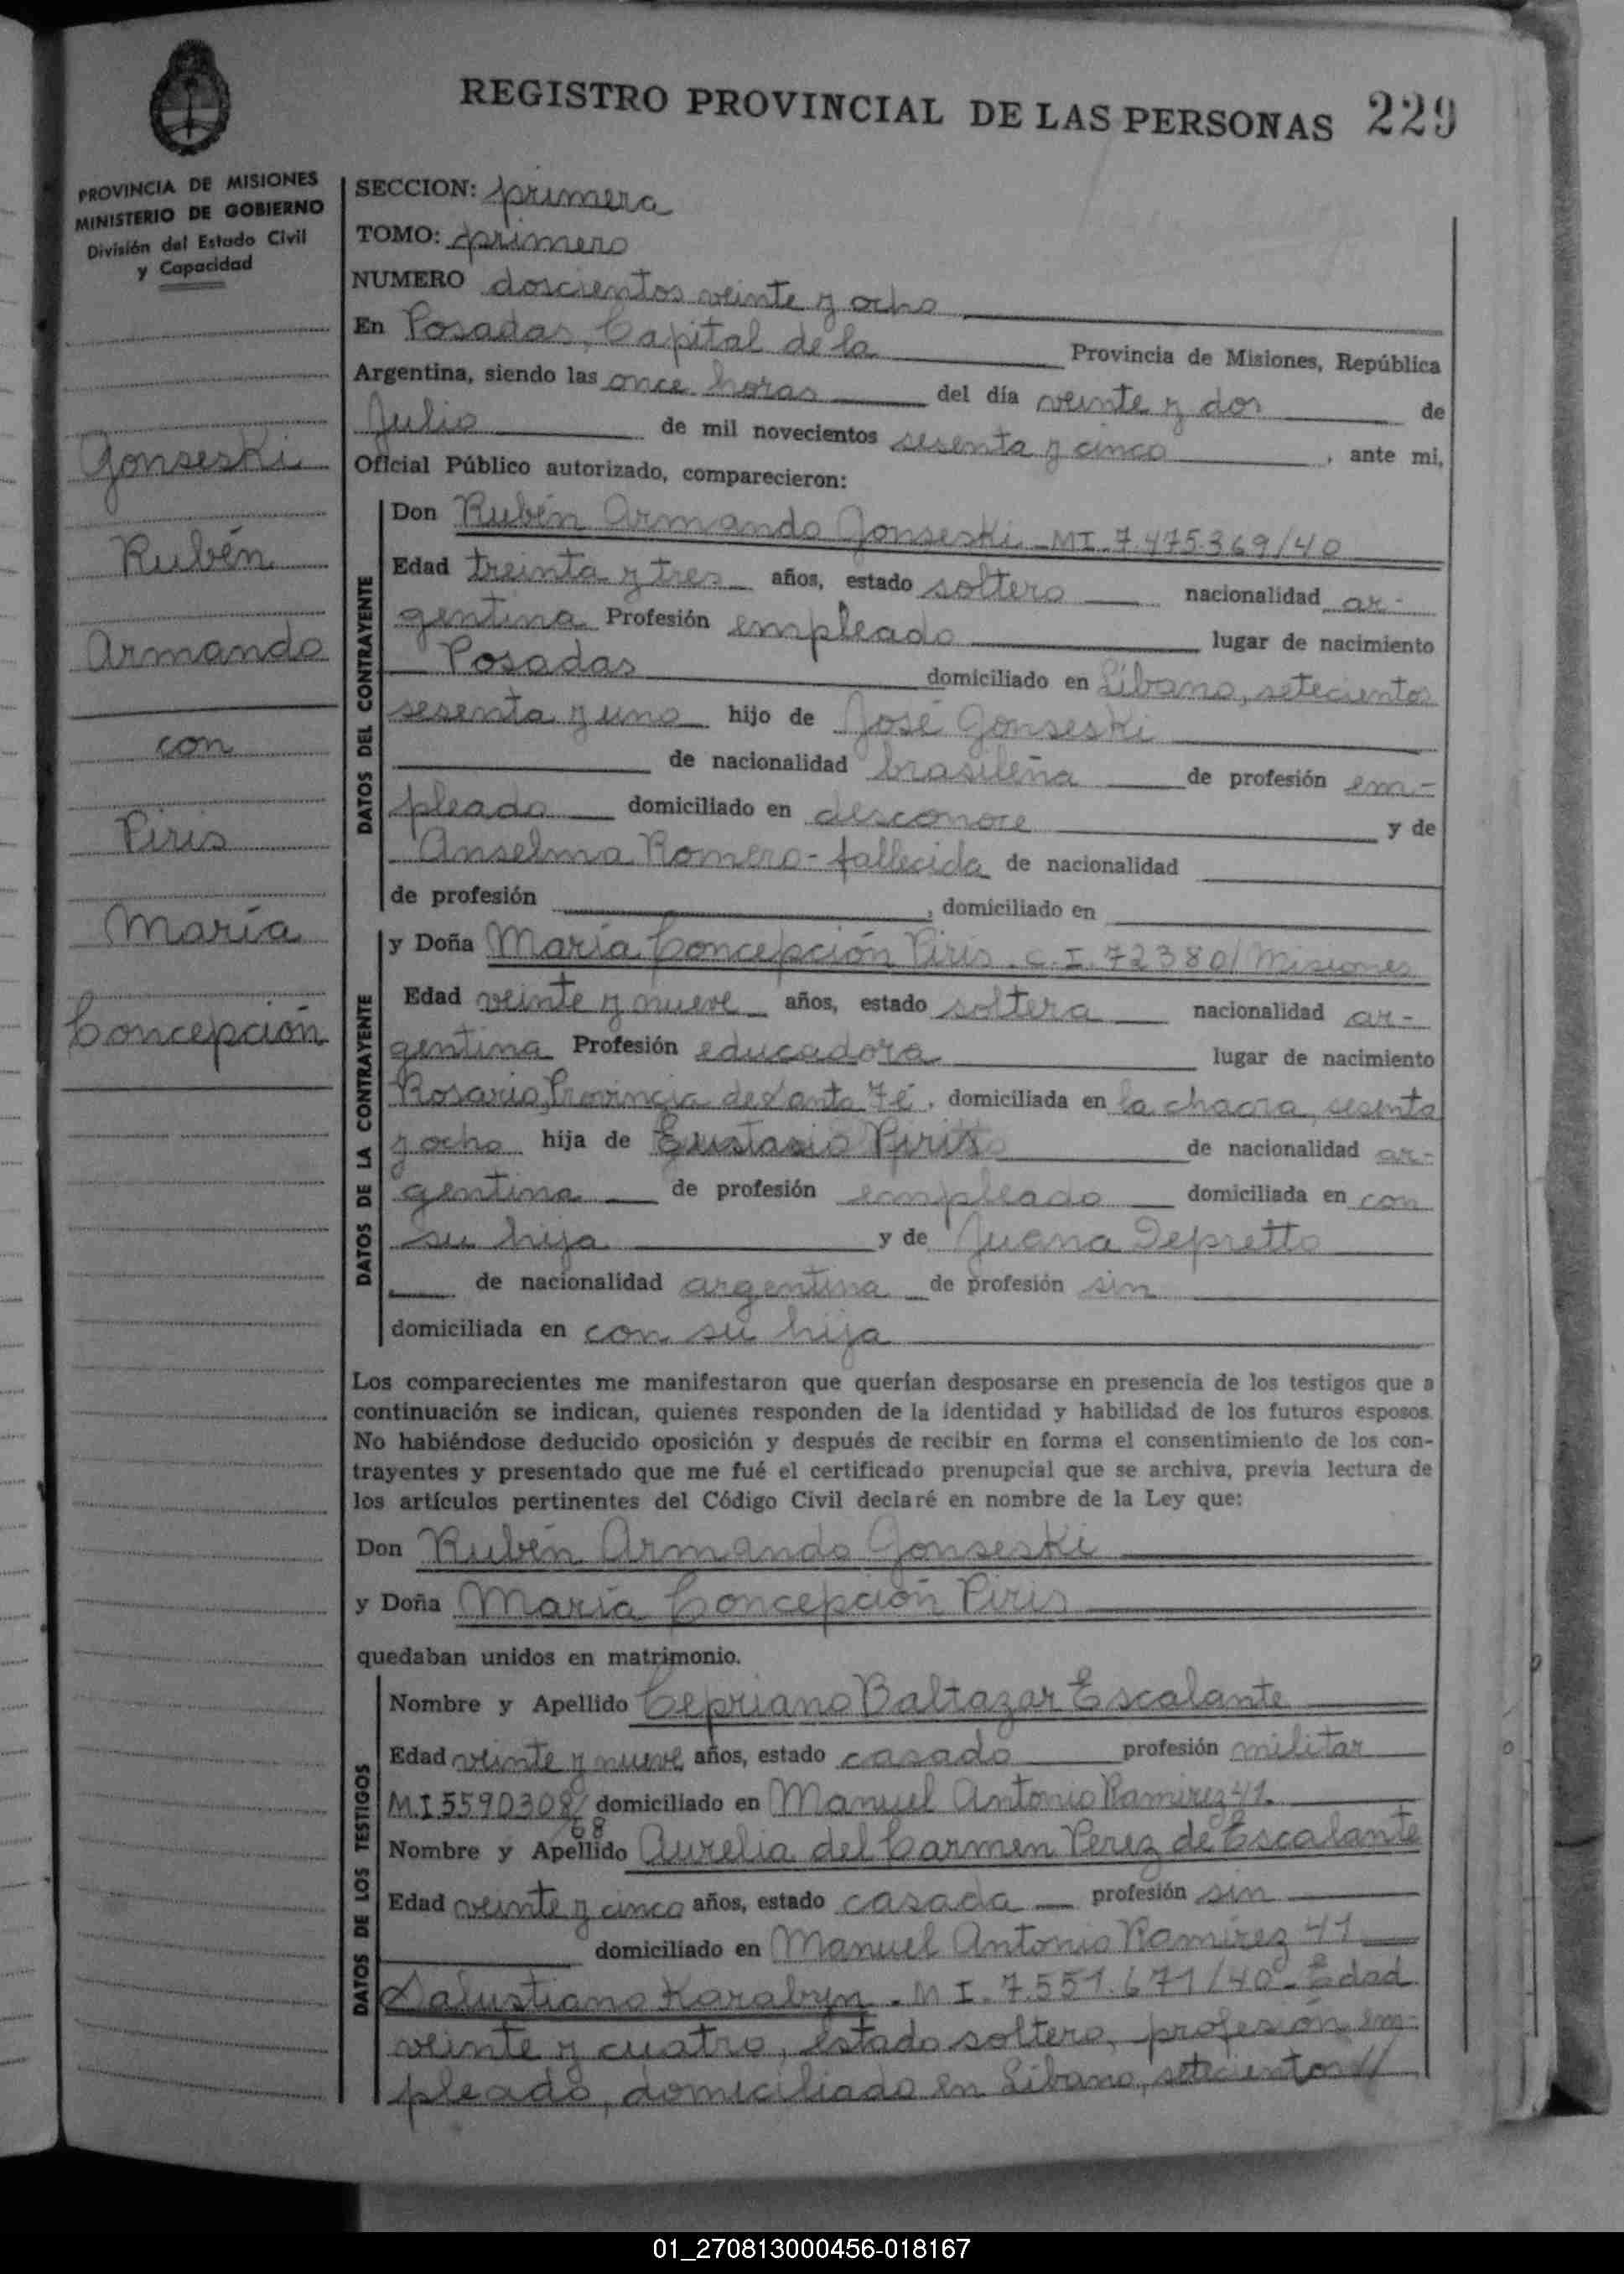 REGISTRO PROVINCIAL DE LAS PERSONAS 229
PROVINCIA DE MISIONES
MINISTERIO DE GOBIERNO
División del Estado Civil
y Capacidad
Gonseski
Rubén
Armando
con
Piris
María
Concepción
SECCION: primera
TOMO: primero
NUMERO doscientos veinte y ocho
En Posadas, Capital de la Provincia de Misiones, República
Argentina, siendo las once horas del día veinte y dos de
Julio de mil novecientos sesenta y cinco, ante mi,
Oficial Público autorizado, comparecieron:
DATOS DEL CONTRAYENTE
Don Rubén Armando Gonseski MI. 7.475.369/40
Edad treinta y tres años, estado soltero nacionalidad ar-
gentina Profesión empleado lugar de nacimiento
Posadas domiciliado en Líbano, setecientos
sesenta y uno hijo de José Gonseski
de nacionalidad brasileña de profesión em-
pleado domiciliado en desconoce y de
Anselma Romero - fallecida de nacionalidad
de profesión , domiciliado en
DATOS DE LA CONTRAYENTE
y Doña María Concepción Piris. C.I. 72380/ Misiones
Edad veinte y nueve años, estado soltera nacionalidad ar-
gentina Profesión educadora lugar de nacimiento
Rosario, Provincia de Santa Fé, domiciliada en la chacra sesenta
y ocho hija de Eustasio Piris de nacionalidad ar-
gentina de profesión empleado domiciliada en con
su hija y de Juana Depretto
de nacionalidad argentina de profesión sin
domiciliada en con su hija
Los comparecientes me manifestaron que querían desposarse en presencia de los testigos que a
continuación se indican, quienes responden de la identidad y habilidad de los futuros esposos.
No habiéndose deducido oposición y después de recibir en forma el consentimiento de los con-
trayentes y presentado que me fué el certificado prenupcial que se archiva, previa lectura de
los artículos pertinentes del Código Civil declaré en nombre de la Ley que:
Don Rubén Armando Gonseski
y Doña María Concepción Piris
quedaban unidos en matrimonio.
DATOS DE LOS TESTIGOS
Nombre y Apellido Cepriano Baltazar Escalante
Edad veinte y nueve años, estado casado profesión militar
M.I 5590308/ domiciliado en Manuel Antonio Ramirez 41.
68
Nombre y Apellido Aurelia del Carmen Perez de Escalante
Edad veinte y cinco años, estado casada profesión sin
domiciliado en Manuel Antonio Ramírez 41
Salustiano Karabyn. M I. 7.551.671/40. Edad
veinte y cuatro, estado soltero, profesión em-
pleado, domiciliado en Líbano, setecientos //
01_270813000456-018167